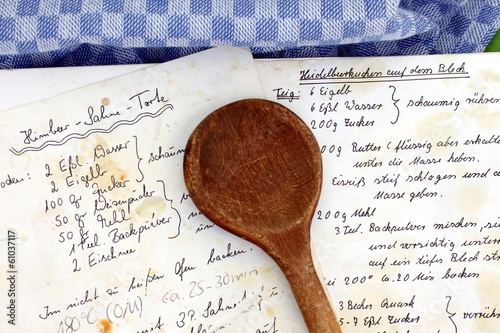 Himbeer-Sahne-Torte
oden: 2 Eßl. Wasser
2 Eigelb
100 gr Zucker
50 gr Weizenpuder
50 gr Mehl
1 Teel. Backpulver
2 Eischnee
schaum
Im nicht zu heißen Ofen backen.
180°C (O/U) ca. 25-30 min
Heidelbeerkuchen auf dem Blech
Teig: 6 Eigelb
6 Eßl Wasser
200g Zucker
schaumig rühren
200g Butter (flüssig aber erkaltet
unter die Masse heben.
Eiweiß steif schlagen und a
Masse geben.
200g Mehl
3 Teel. Backpulver mischen, sie
und vorsichtig unter
auf ein tiefes Blech str
bei 200° ca. 20 Min backen
3 Becher Quark
5-7 Eßl Zucker
Adobe Stock | #61037117